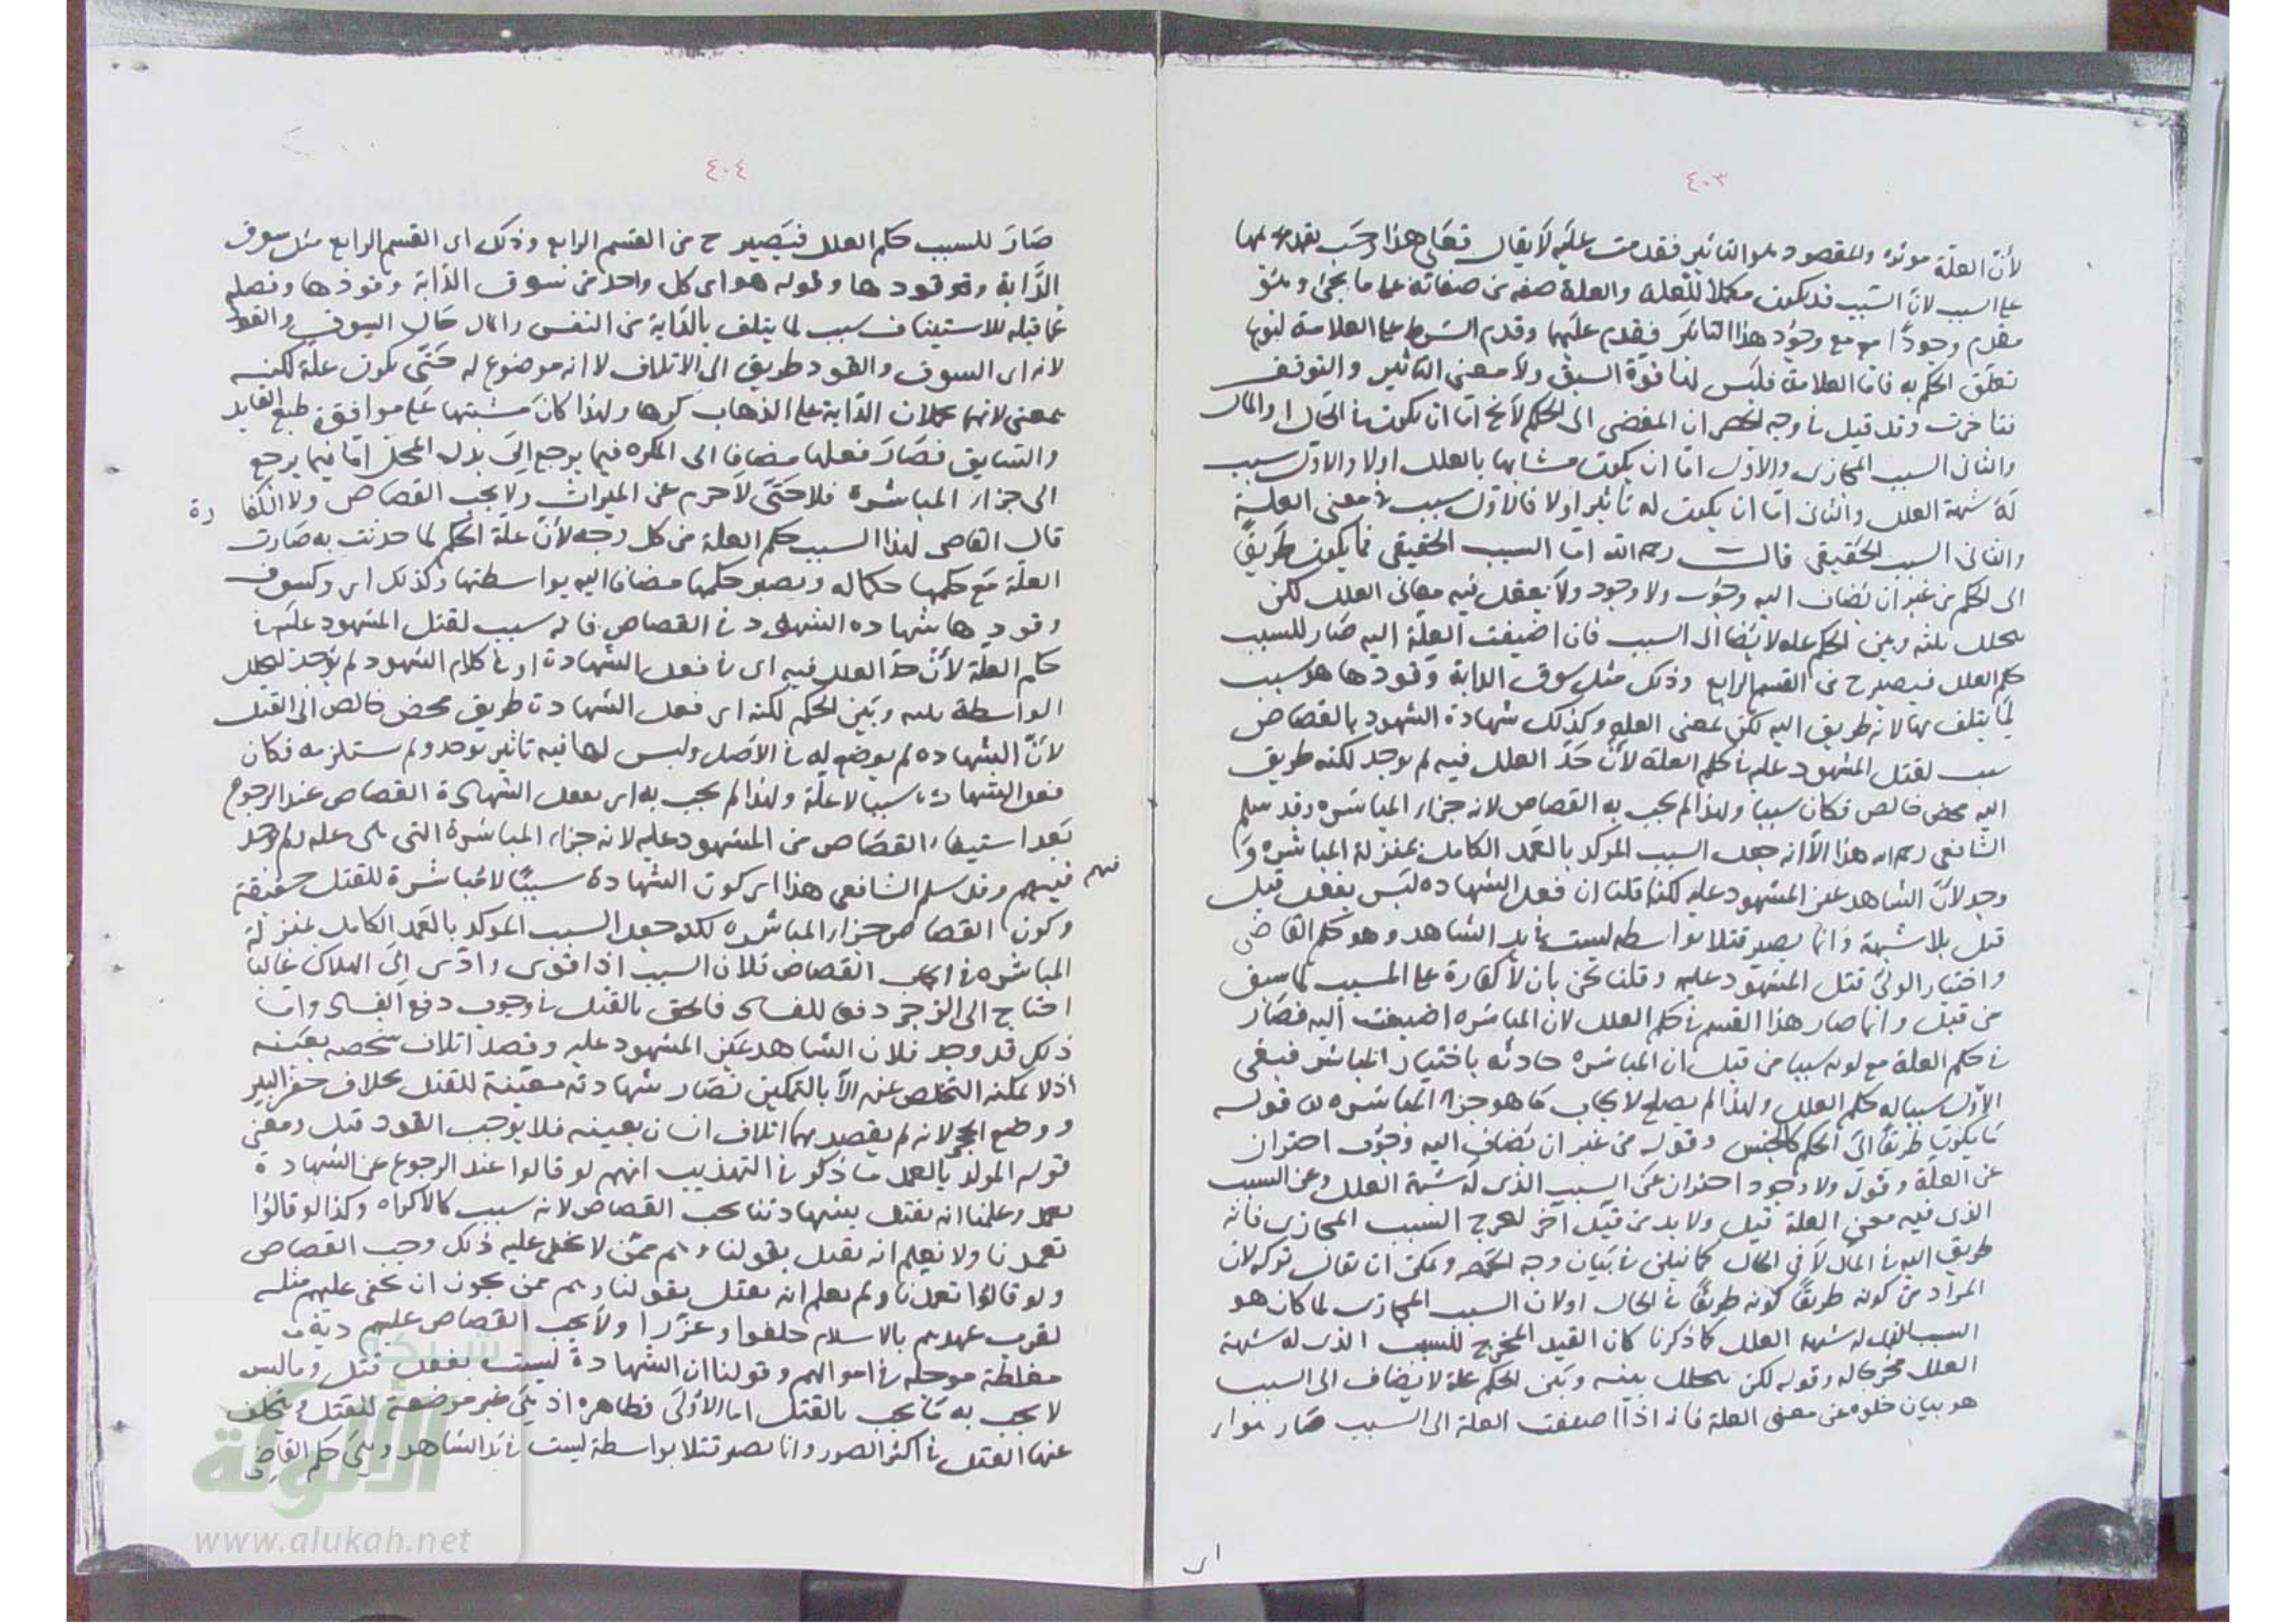 ٤٠٣
لأن العلة مؤثرة والمقصود هو التاثير فقدمت عليه لا يقال فعلى هذا وجب تقديمها
على السبب لان السبب قد يكون مكملا للعلة والعلة صفه من صفاته على ما يجئ
مقدم وجودا مع وجود هذا التاثير فقدم عليهما وقدم الشرط على العلامة لنوع
تعلق الحكم به فاما العلامة فليس لها قوة السبق ولا معنى التاثير والتوقف
فتاخرت وقد قيل في وجه الحصر ان المفضى الى الحكم لا يخ اما ان يكون في الحال او المآل
والثانى السبب المجازى والاول اما ان يكون مشابها بالعلل اولا والاول سبب
له شبهة العلل والثانى اما ان يكون له تاثير اولا فالاول سبب في معنى العلة
والثانى السبب الحقيقى قالـــت رحمه الله اما السبب الحقيقى فما يكون طريقا
الى الحكم من غير ان يضاف اليه وجوب ولا وجود ولا يعقل فيه معانى العلل لكن
يتخلل بينه وبين الحكم علة لا يضاف الى السبب فان اضيفت العلة اليه صار للسبب
حكم العلل فيصير ح من القسم الرابع وذلك مثل سوق الدابة وقودها هو سبب
لما يتلف بها لانه طريق اليه لكن بمعنى العلة وكذلك شهادة الشهود بالقصاص
سبب لقتل المشهود عليه في حكم العلة لأن حد العلل فيه لم يوجد لكنه طريق
اليه محض خالص فكان سببا ولهذا لم يجب به القصاص لانه جزاء المباشرة وقد سلم
الشافعى رحمه الله هذا الا انه جعل السبب الموكد بالعمد الكامل بمنزلة المباشرة وقد
وجد لأن الشاهد عين المشهود عليه لكنا قلنا ان فعل الشهاده ليس بفعل قتل
قتل بلا شبهة وانما يصير قتلا بواسطة ليست في يد الشاهد وهو حكم القاضى
واختيار الولى قتل المشهود عليه وقلنا نحن بان لا كفارة على المسبب كما سبق
من قبل وانما صار هذا القسم في حكم العلل لان المباشرة اضيفت اليه فصار
في حكم العلة مع كونه سببا من قبل ان المباشرة حادثه باختيار المباشر فبقى
الاول سببا له حكم العلل ولهذا لم يصلح لايجاب ما هو جزاء المباشرة قوله
ما يكون طريقا الى الحكم كالجنس وقوله من غير ان يضاف اليه وجوب احتراز
عن العلة وقوله ولا وجود احتراز عن السبب الذى له شبهة العلل وعن السبب
الذى فيه معنى العلة قيل ولا بد من قيد آخر ليخرج السبب المجازى فانه
طريق اليه في المآل لا في الحال كما نبلى في بيان وجه الحصر ويمكن ان يقال تركه لان
المراد من كونه طريقا كونه طريقا في الحال اولان السبب المجازى لما كان هو
السبب الذى له شبهة العلل كما ذكرنا كان القيد المخرج للسبب الذى له شبهة
العلل مخرجا له وقوله لكن يتخلل بينه وبين الحكم علة لا يضاف الى السبب
هو بيان خلوه عن معنى العلة فانه اذا اضيفت العلة الى السبب صار
اى
٤٠٤
صار للسبب حكم العلل فيصير ح من القسم الرابع وذلك اى القسم الرابع مثل سوق
الدابة وقودها وقوله هو اى كل واحد من سوق الدابة وقودها وفصله
عما قبله للاستيناف سبب لما يتلف بالدابة من النفس والمال حال السوق والقود
لانه اى السوق والقود طريق الى الاتلاف لا انه موضوع له حتى يكون علة لكنه
بمعنى لانهما يحملان الدابة على الذهاب كرها ولهذا كان مشيتها على موافقة طبع القايد
والسايق فصار فعلها مضافا الى المكره فيما يرجع الى بدل المحل اما فيما يرجع
الى جزاء المباشرة فلا حتى لا يحرم عن الميراث ولا يجب القصاص ولا الكفا رة
قال القاضى لهذا السبب حكم العلة من كل وجه لأن علة الحكم لما حدثت به صارت
العلة مع حكمها حكما له ويصير حكمها مضافا اليه بواسطتها وكذلك اى وكسوق
وقودها شهاده الشهود في القصاص فانه سبب لقتل المشهود عليه في
حكم العلة لأن حد العلل فيه اى في فعل الشهادة او في كلام الشهود لم يوجد لتخلل
الواسطة بينه وبين الحكم لكنه اى فعل الشهادة طريق محض خالص الى القتل
لأن الشهاده لم يوضع له في الاصل وليس لها فيه تاثير يوجد ولم ستلزمه فكان
فعل الشهادة سببا لا علة ولهذا لم يجب به اى بفعل الشهادة القصاص عند الرجوع
بعد استيفاء القصاص من المشهود عليه لانه جزاء المباشرة التى هى علة ولم يوجد
فيهم وقد سلم الشافعى هذا اى كون الشهادة سببا لا مباشرة للقتل حقيقة
وكون القصاص جزاء المباشرة لكنه جعل السبب الموكد بالعمد الكامل بمنزلة
المباشرة في ايجاب القصاص فلان السبب اذا قوى وادى الى الهلاك غالبا
احتاج الى الزجر دفعا للفساد فالحق بالقتل في وجوب دفع الفساد واما
ذلك قد وجد فلان الشاهد عين المشهود عليه وقصد اتلاف شخصه بعينه
اذ لا يمكنه التخلص عنه الا بالتمكين فصار شهادته معينة للقتل بخلاف حفر البير
ووضع الحجر لانه لم يقصد بهما اتلاف انسان بعينه فلا يوجب القود قيل ومعنى
قوله الموكد بالعمد ما ذكر في التهذيب انهم لو قالوا عند الرجوع عن الشهادة
تعمدنا وعلمنا انه يقتل بشهادتنا يجب القصاص لانه سبب كالاكراه وكذا لو قالوا
تعمدنا ولا نعلم انه يقتل بقولنا وهم ممن لا يخفى عليه ذلك وجب القصاص
ولو قالوا تعمدنا ولم نعلم انه يقتل بقولنا وهم ممن يجوز ان يخفى عليهم مثله
لقرب عهدهم بالاسلام حلفوا وعزروا ولا يجب القصاص عليهم دية
مغلظة موجلة في اموالهم وقولنا ان الشهادة ليست بفعل قتل وما ليس
لا يجب به ما يجب بالقتل اما الاولى فظاهره اذ هى غير موضعة للقتل ويتخلف
عنها القتل في اكثر الصور وانما يصير قتلا بواسطة ليست في يد الشاهد وهى حكم القاضى
شبكة
الألوكة
www.alukah.net